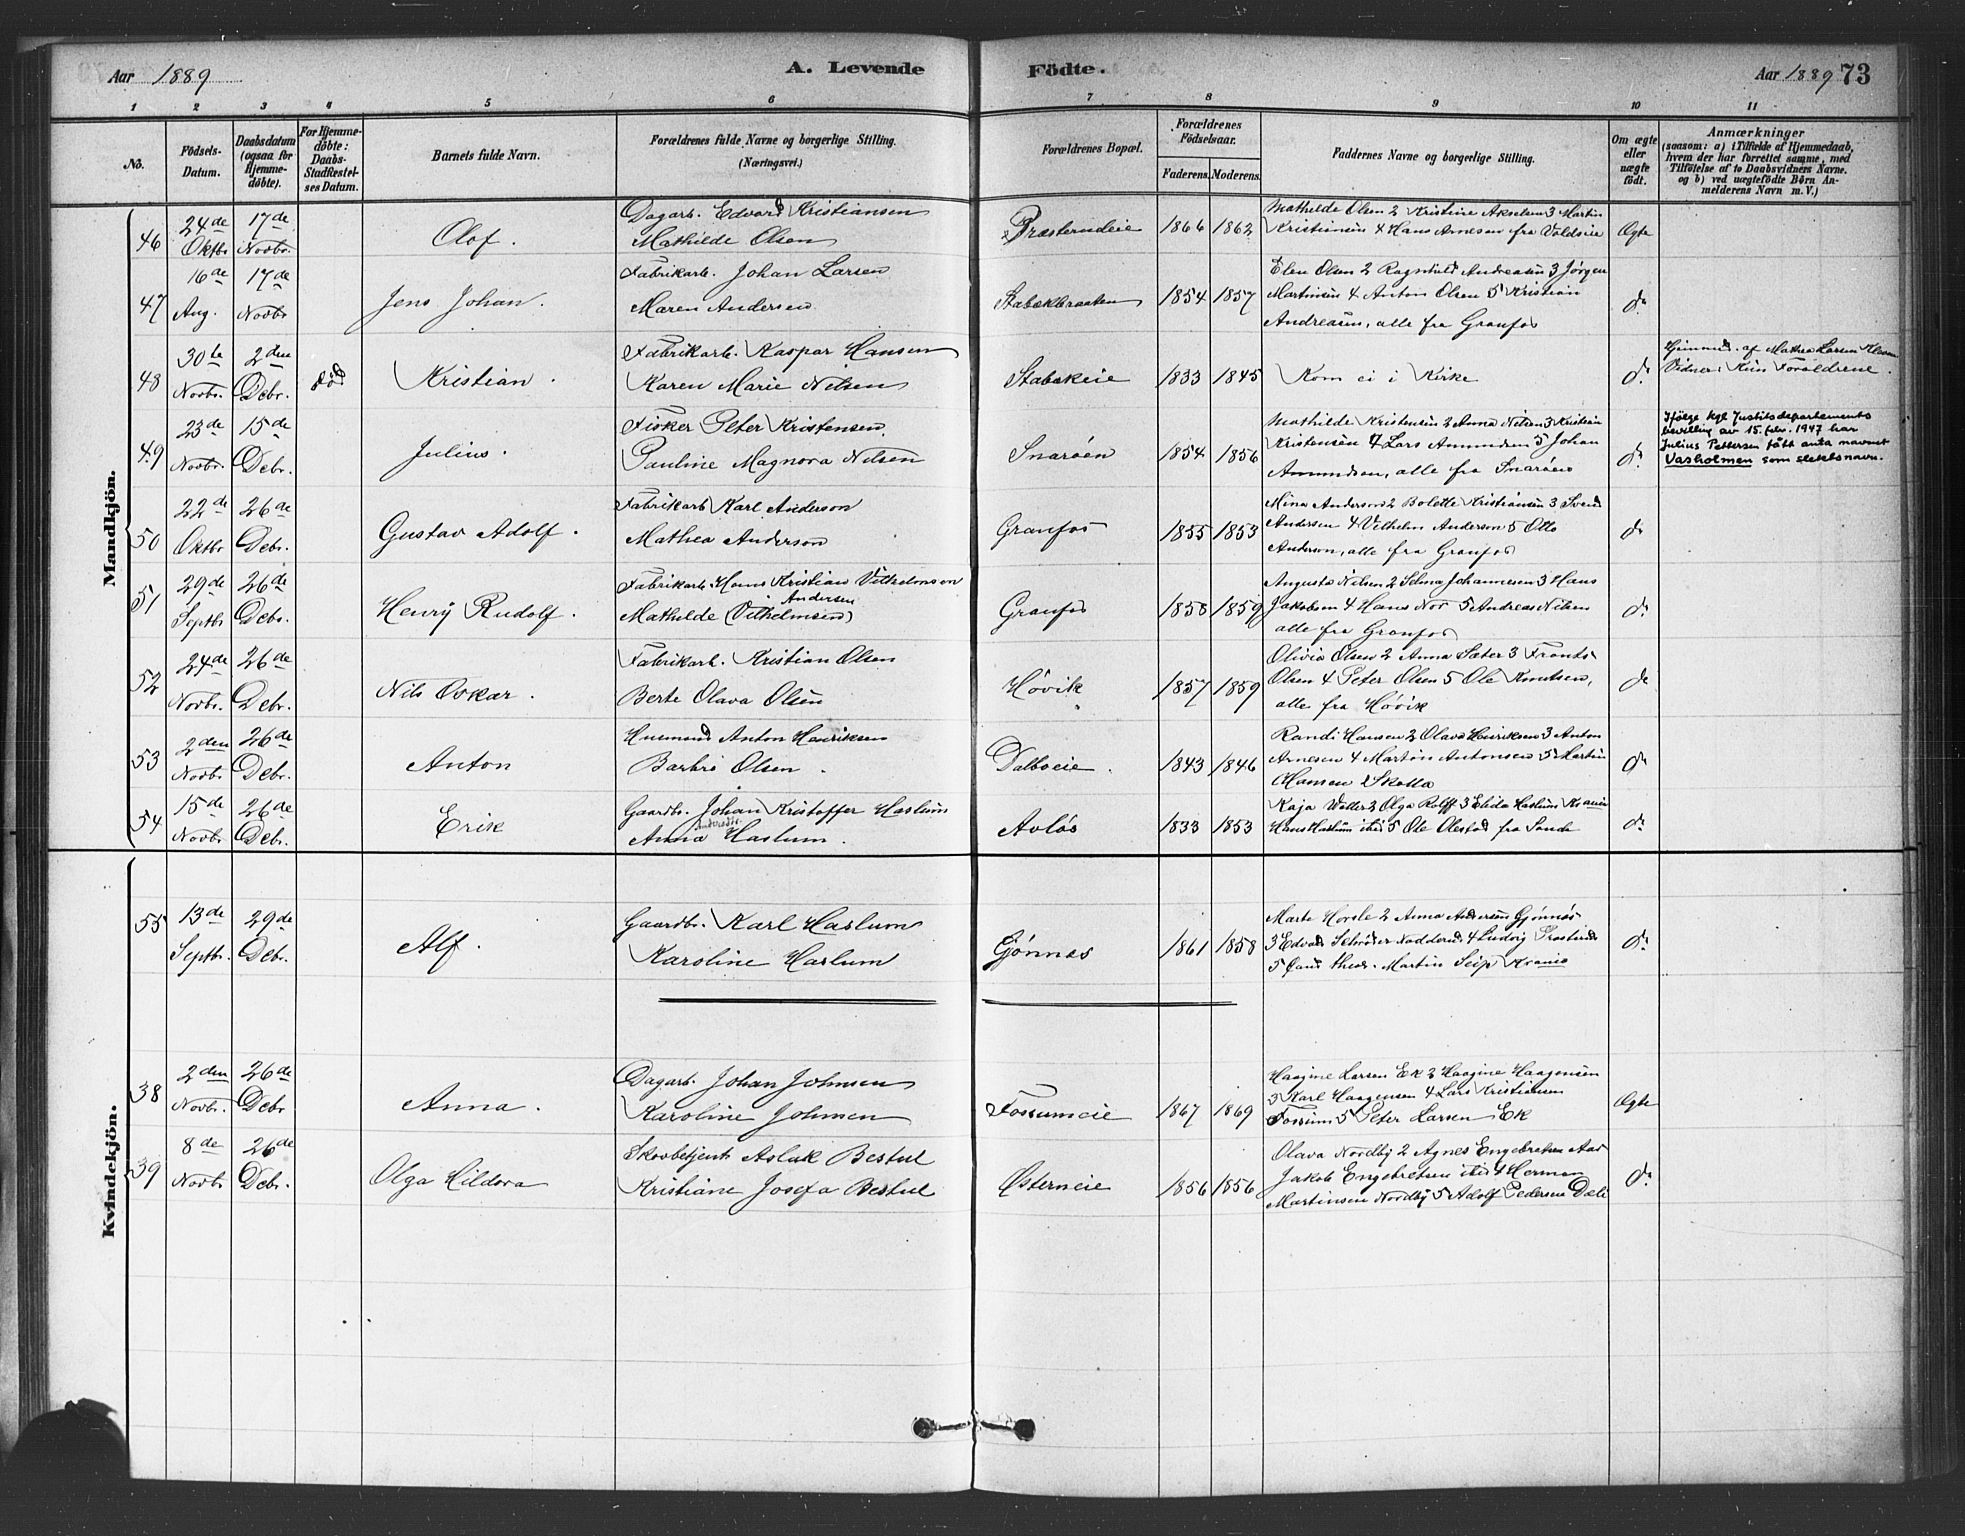 Aar 1889
A. Levende
Födte.
Aar 1889 73
1 2 3 4 5 6 7 8 9 10 11
No.
Födsels-Datum.
Daabsdatum (ogsaa for Hjemmedöbte).
For Hjemmedöbte: Daabs-Stadfæstelses Datum.
Barnets fulde Navn.
Forældrenes fulde Navne og borgerlige Stilling. (Næringsvei.)
Forældrenes Bopæl.
Forældrenes Födselsaar.
Faderens. Moderens.
Faddernes Navne og borgerlige Stilling.
Om ægte eller uægte födt.
Anmærkninger
(saasom: a) i Tilfælde af Hjemmedaab, hvem der har forrettet samme, med Tilföielse af to Daabsvidners Navne. og b) ved uægtefödte Börn Anmelderens Navn m. V.)
Mandkjön.
46 24de Oktbr 17de Novbr. Olof.
Dagarb. Edvard Kristiansen
Mathilde Olsen
Præsterudeie 1866 1862
Mathilde Olsen 2 Kristine Akselsen 3 Martin
Kristiansen 4 Hans Arnesen fra Voldseie
Ægte
47 16de Aug. 17de Novbr Jens Johan.
Fabrikarb. Johan Larsen
Maren Andersen
Stabækbraaten 1854 1857
Elen Olsen 2 Ragnhild Andreasen 3 Jørgen
Martinsen 4 Anton Olsen 5 Kristian
Andreasen, alle fra Granfos
do
48 30te Novbr. 2den Debr. død Kristian.
Fabrikarb. Kaspar Hansen
Karen Marie Nilsen
Stabækeie 1833 1845
Kom ei i Kirke
do
Hjemmed. af Mathea Larsen
Vidner: Kun Forældrene.
49 23de Novbr. 15de Debr. Julius.
Fisker Peter Kristensen.
Pauline Magnora Nilsen
Snarøen 1854 1856
Mathilde Kristensen 2 Anna Nilsen 3 Kristian
Kristensen 4 Lars Amundsen 5 Johan
Amundsen, alle fra Snarøen
do
Ifølge kgl Justitsdepartements
bevilling av 15. febr. 1947 har
Julius Pettersen fått anta navnet
Vasholmen som slektsnavn.
50 22de Oktbr 26de Debr. Gustav Adolf.
Fabrikarb Karl Anderson
Mathea Anderson
Granfos 1855 1853
Mina Anderson 2 Bolette Kristiansen 3 Svend
Andersen 4 Vilhelm Anderson 5 Otto
Anderson, alle fra Granfos
do
51 29de Septbr 26de Debr. Henry Rudolf.
Fabrikarb. Hans Kristian Vilhelmson
Andersen
Mathilde (Vilhelmsen)
Granfos 1858 1859
Augusta Nilsen 2 Selma Johannesen 3 Hans
Jakobsen 4 Hans Nor 5 Andreas Nilsen
alle fra Granfos
do
52 24de Novbr. 26de Debr. Nils Oskar.
Fabrikarb. Kristian Olsen
Berte Olava Olsen
Høvik 1857 1859
Olivia Olsen 2 Anna Sæter 3 Frants
Olsen 4 Peter Olsen 5 Ole Knutsen,
alle fra Høvik
do
53 2den Novbr. 26de Debr. Anton
Husmand Anton Henriksen
Barbro Olsen.
Dalboeie. 1843 1846
Randi Hansen 2 Olava Henriksen 3 Anton
Arnesen 4 Martin Antonsen 5 Martin
Hansen Skotta
do
54 15de Novbr 26de Debr. Erik
Gaardbr. Johan Kristoffer Haslum
Anna Haslum.
Avløs 1833 1853
Kaja Walter 2 Olga Rolff 3 Elida Haslum
Hans Haslum ibid 5 Ole Olestad fra Sande
do
55 13de Septbr. 29de Debr. Alf.
Gaardbr. Karl Haslum
Karoline Haslum
Gjønnes 1861 1858
Marte Horsle 2 Anna Andersen Gjønnes
3 Edvard Schrøder Nadderud 4 Ludvig
5 Cand. theol. Martin Seip
do
Kvindekjön.
38 2den Novbr. 26de Debr Anna.
Dagarb. Johan Johnsen
Karoline Johnsen
Fossumeie 1867 1869
Haagine Larsen Ek 2 Haagine Haagensen
3 Karl Haagensen 4 Lars Kristiansen
Fossum 5 Peter Larsen Ek
Ægte
39 8de Novbr 26de Debr. Olga Hildora
Skovbetjent Aslak Bestul
Kristiane Josefa Bestul
Østerneie 1856 1856
Olava Nordby 2 Agnes Engebretsen
Jakob Engebretsen ibid 4 Herman
Martinsen Nordby 5 Adolf Pedersen Dæli
do